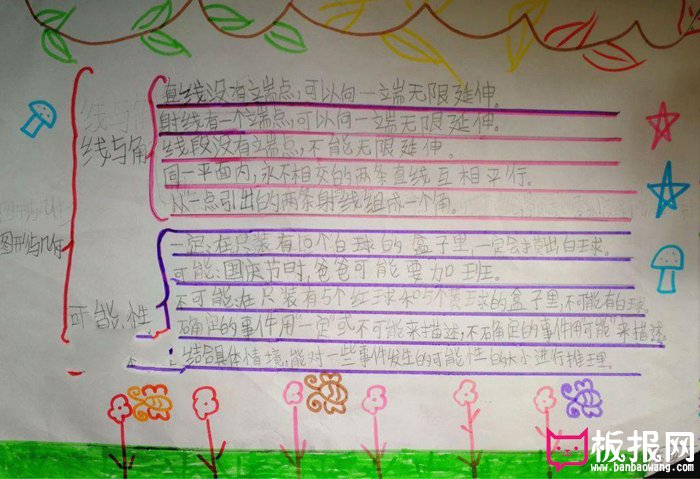 直线没有端点,可以向一端无限延伸。
射线有一个端点,可以向一端无限延伸。
线与角
线段没有端点,不能无限延伸。
同一平面内,永不相交的两条直线互相平行。
从一点引出的两条射线组成一个角。
图形与几何
一定:在只装有10个白球的盒子里,一定会摸出白球。
可能:国庆节时,爸爸可能要加班。
不可能:在只装有5个红球和5个黄球的盒子里,不可能有白球。
可能性
确定的事件用“一定”或不可能来描述,不确定的事件用“可能”来描述
结合具体情境,能对一些事件发生的可能性的大小进行推理。
板报网
www.banbaowang.com